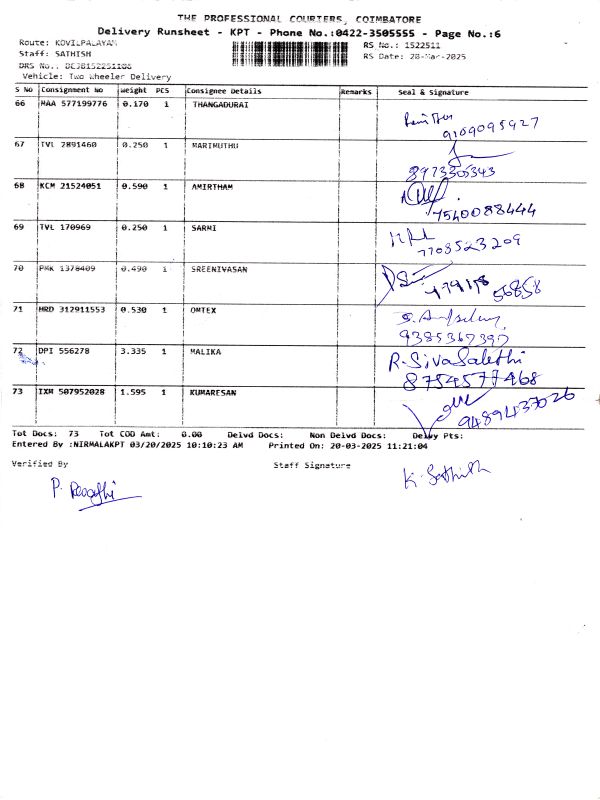 THE PROFESSIONAL COURIERS, COIMBATORE
Delivery Runsheet - KPT - Phone No.:0422-3505555 - Page No.:6
Route: KOVILPALAYAM RS No.: 1522511
Staff: SATHISH RS Date: 20-Mar-2025
DRS No.:
Vehicle: Two Wheeler Delivery
S No Consignment No Weight PCS Consignee Details Remarks Seal & Signature
66 MAA 577199776 0.170 1 THANGADURAI
9109095927
67 TVL 2891460 0.250 1 MARIMUTHU
8973305343
68 KCM 21524051 0.590 1 AMIRTHAM
7540088444
69 TVL 170969 0.250 1 SARMI
7708523209
70 PMK 1378409 0.490 1 SREENIVASAN
56858
71 HRD 312911553 0.530 1 OMTEX
9385367397
72 DPI 556278 3.335 1 MALIKA R. SivaSakthi
8754577468
73 IXM 507952028 1.595 1 KUMARESAN
9489437026
Tot Docs: 73 Tot COD Amt: 0.00 Delvd Docs: Non Delvd Docs: Delvy Pts:
Entered By :NIRMALAKPT 03/20/2025 10:10:23 AM Printed On: 20-03-2025 11:21:04
Verified By Staff Signature
K. Sathish